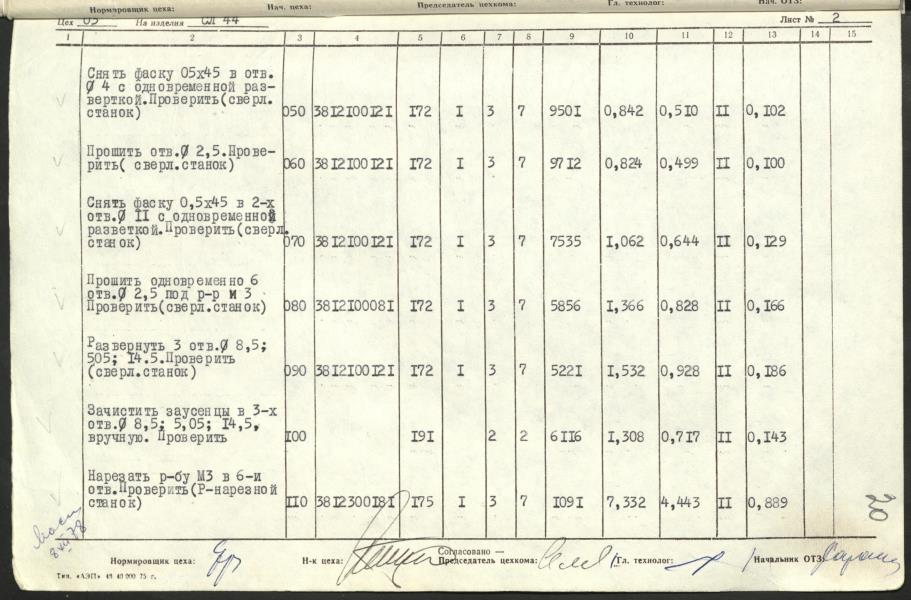 Нормировщик цеха: Нач. цеха: Председатель цехкома: Гл. технолог: Нач. ОТЗ:
Цех 05 На изделия СЛ 44 Лист № 2
1 2 3 4 5 6 7 8 9 10 11 12 13 14 15
Снять фаску 05х45 в отв.
Ø 4 с одновременной раз-
верткой.Проверить(сверл.
станок) 050 38I2I00I2I I72 I 3 7 950I 0,842 0,5I0 II 0,I02
Прошить отв.Ø 2,5.Прове-
рить( сверл.станок) 060 38I2I00I2I I72 I 3 7 97I2 0,824 0,499 II 0,I00
Снять фаску 0,5х45 в 2-х
отв.Ø II с одновременной
разветкой.Проверить(сверл.
станок) 070 38I2I00I2I I72 I 3 7 7535 I,062 0,644 II 0,I29
Прошить одновременно 6
отв.Ø 2,5 под р-р м 3
Проверить(сверл.станок) 080 38I2I0008I I72 I 3 7 5856 I,366 0,828 II 0,I66
Развернуть 3 отв.Ø 8,5;
505; I4.5.Проверить
(сверл.станок) 090 38I2I00I2I I72 I 3 7 522I I,532 0,928 II 0,I86
Зачистить заусенцы в 3-х
отв.Ø 8,5; 5,05; I4,5,
вручную. Проверить I00 I9I 2 2 6II6 I,308 0,7I7 II 0,I43
Нарезать р-бу М3 в 6-и
отв.Проверить(Р-нарезной
станок) II0 38I2300I8I I75 I 3 7 I09I 7,332 4,443 II 0,889
20
Согласовано —
Нормировщик цеха: Н-к цеха: Председатель цехкома: Гл. технолог: Начальник ОТЗ:
Тип. «АЭП» 49 40 000 75 г.